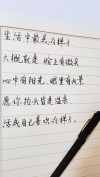 生活中最美的样子
大概就是 脸上有微笑
心中有阳光 眼里有风景
愿你抬头皆是温柔
活成自己喜欢的样子